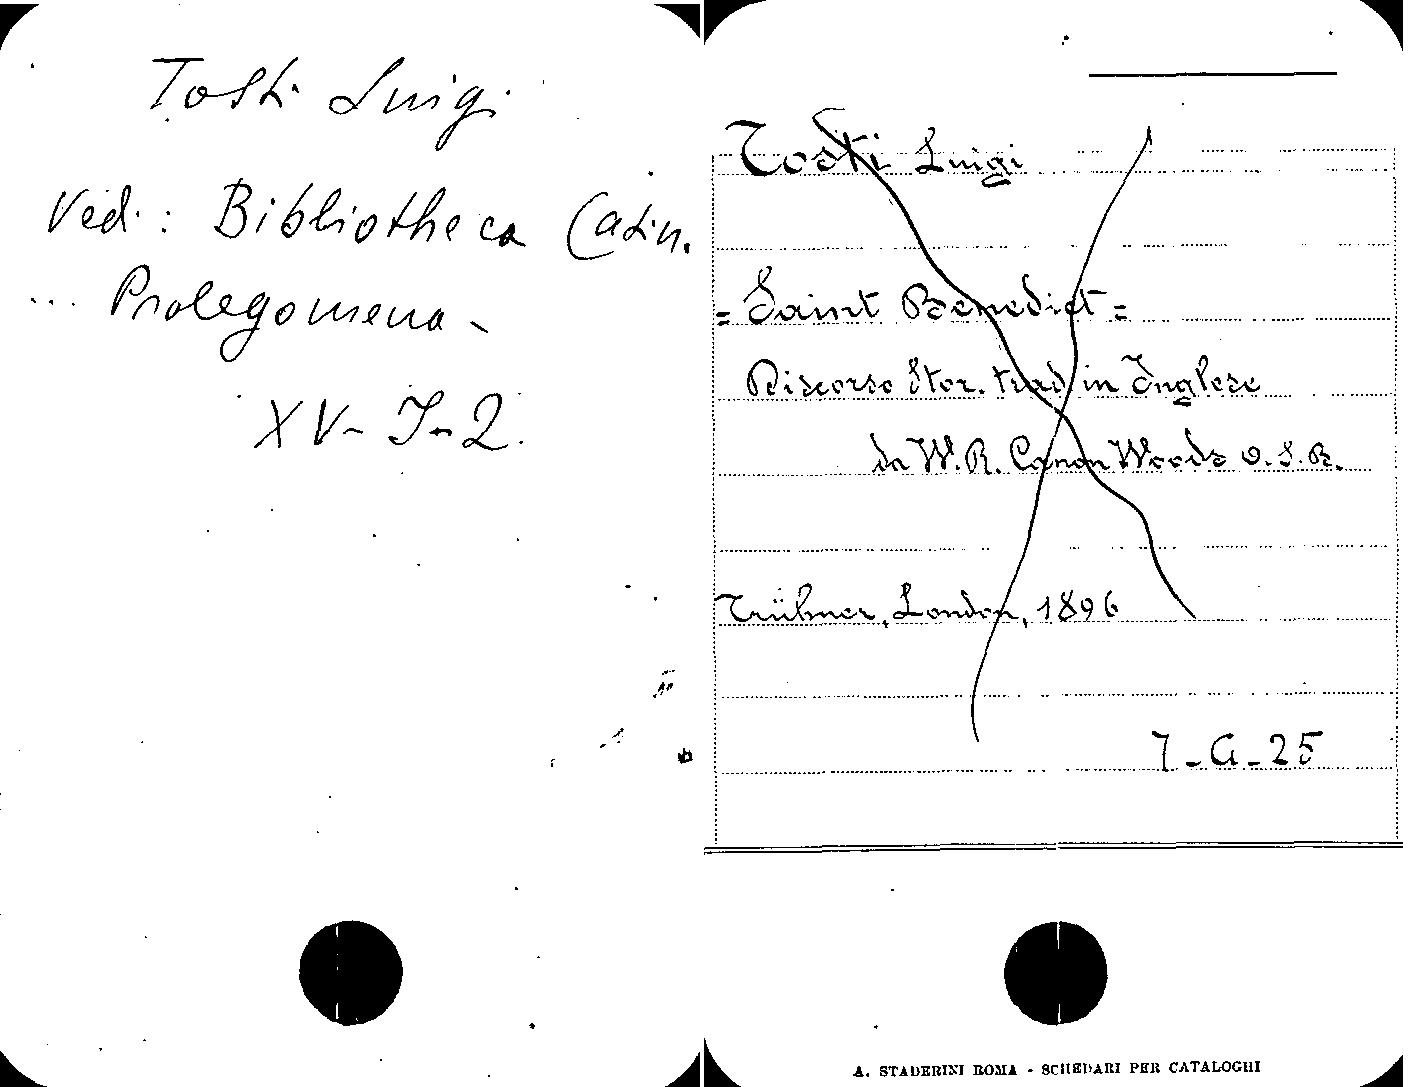 Tosti Luigi
Vedi: Bibliotheca Casin.
... Prolegomena -
XV- I-2.
Tosti Luigi
= Saint Benedict =
Discorso Stor. trad in Inglese
da W.R. Canon Woods O.S.B.
Trübner, London, 1896
7-G-25
A. STADERINI ROMA - SCHEDARI PER CATALOGHI